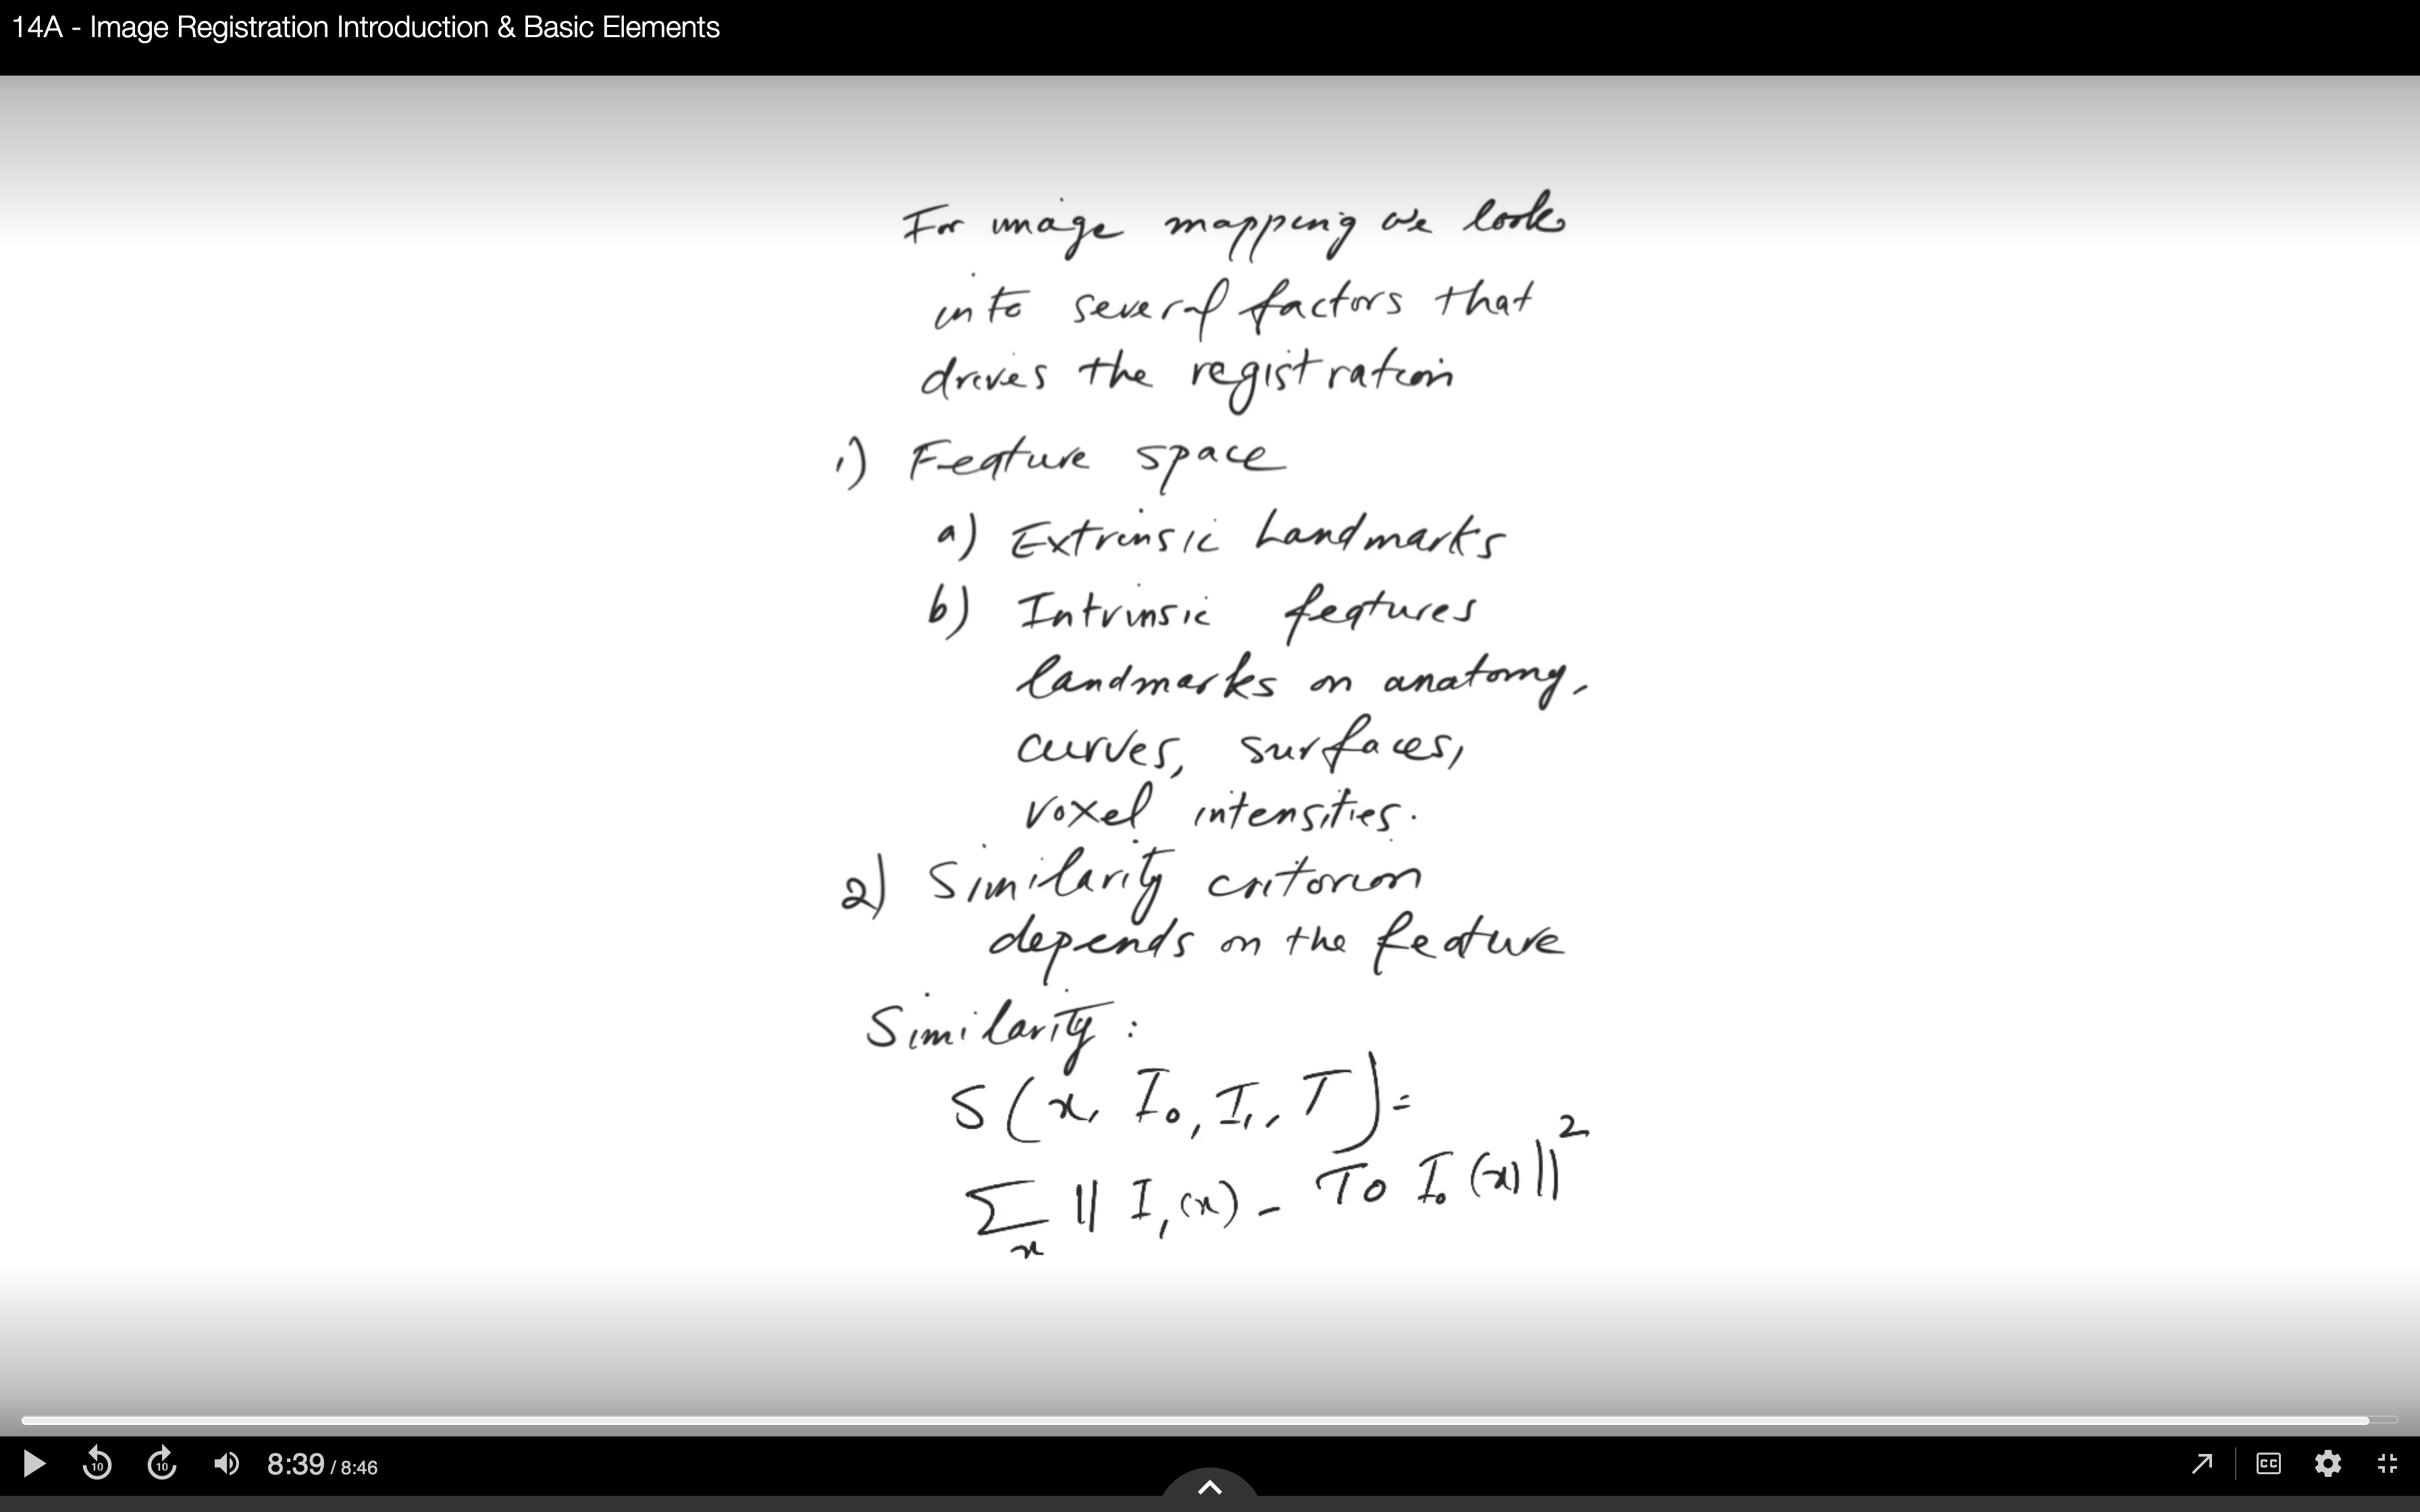 14A - Image Registration Introduction & Basic Elements
For image mapping we look
into several factors that
drives the registration
1) Feature space
a) Extrinsic Landmarks
b) Intrinsic features
landmarks on anatomy,
curves, surfaces,
voxel intensities.
2) Similarity criterion
depends on the feature
Similarity :
S(x, I₀, I₁, T) =
∑ₓ || I₁(x) - T∘ I₀(x) ||²
10 10 8:39 / 8:46 CC